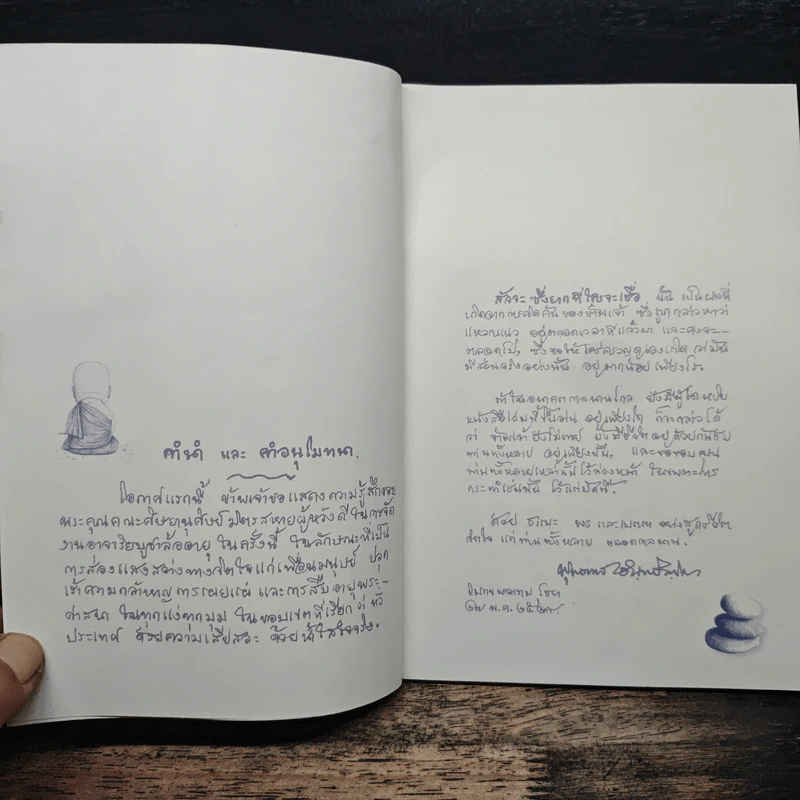 คำนำ และ คำอนุโมทนา.
โอกาศแรกนี้ ข้าพเจ้าขอแสดงความรู้สึกขอบ
พระคุณคณะศิษยานุศิษย์ มิตรสหายผู้หวังดี ในการจัด
งานอาจาริยบูชาล้ออายุ ในครั้งนี้ ในลักษณะที่เป็น
การส่องแสงสว่างทางจิตใจแก่เพื่อนมนุษย์ ปลุก
เร้าความกล้าหาญ การเผยแผ่ และการสืบอายุพระ-
ศาสนา ในทุกแง่ทุกมุม ในขอบเขตที่เรียกว่า ทั่ว
ประเทศ ด้วยความเสียสละ ด้วยน้ำใสใจจริง.
สัจจะ ซึ่งยากที่ใครจะเชื่อ นั้น เป็นผลที่
เกิดจากการคิดค้นของข้าพเจ้า ซึ่งถูกกล่าวหาว่า
แหวกแนว อยู่ตลอดเวลาที่แล้วมา และคงจะ-
ตลอดไป, ซึ่งขอให้ใคร่ครวญดูเองเถิด ว่ามัน
มีส่วนจริงอย่างนั้น อยู่มากน้อยเพียงไร.
ถ้าในอนาคตกาลนานไกล ยังมีผู้ใดหยิบ
หนังสือเล่มนี้ขึ้นอ่าน อยู่เพียงใด ก็จะกล่าวได้
ว่า ข้าพเจ้ายังไม่ตาย ยังมีชีวิตอยู่ด้วยกันกับ
ท่านทั้งหลาย อยู่เพียงนั้น, และขอขอบคุณ
ท่านทั้งหลายเหล่านั้น ไว้ล่วงหน้า ในเพราะการ
กระทำเช่นนั้น ไว้แต่บัดนี้.
ด้วย ธรรมะ พร และเมตตา อย่างสุดชีวิต
จิตใจ แด่ท่านทั้งหลาย ตลอดกาลนาน.
พุทธทาส อินทปัญโญ
โมกขพลาราม ไชยา